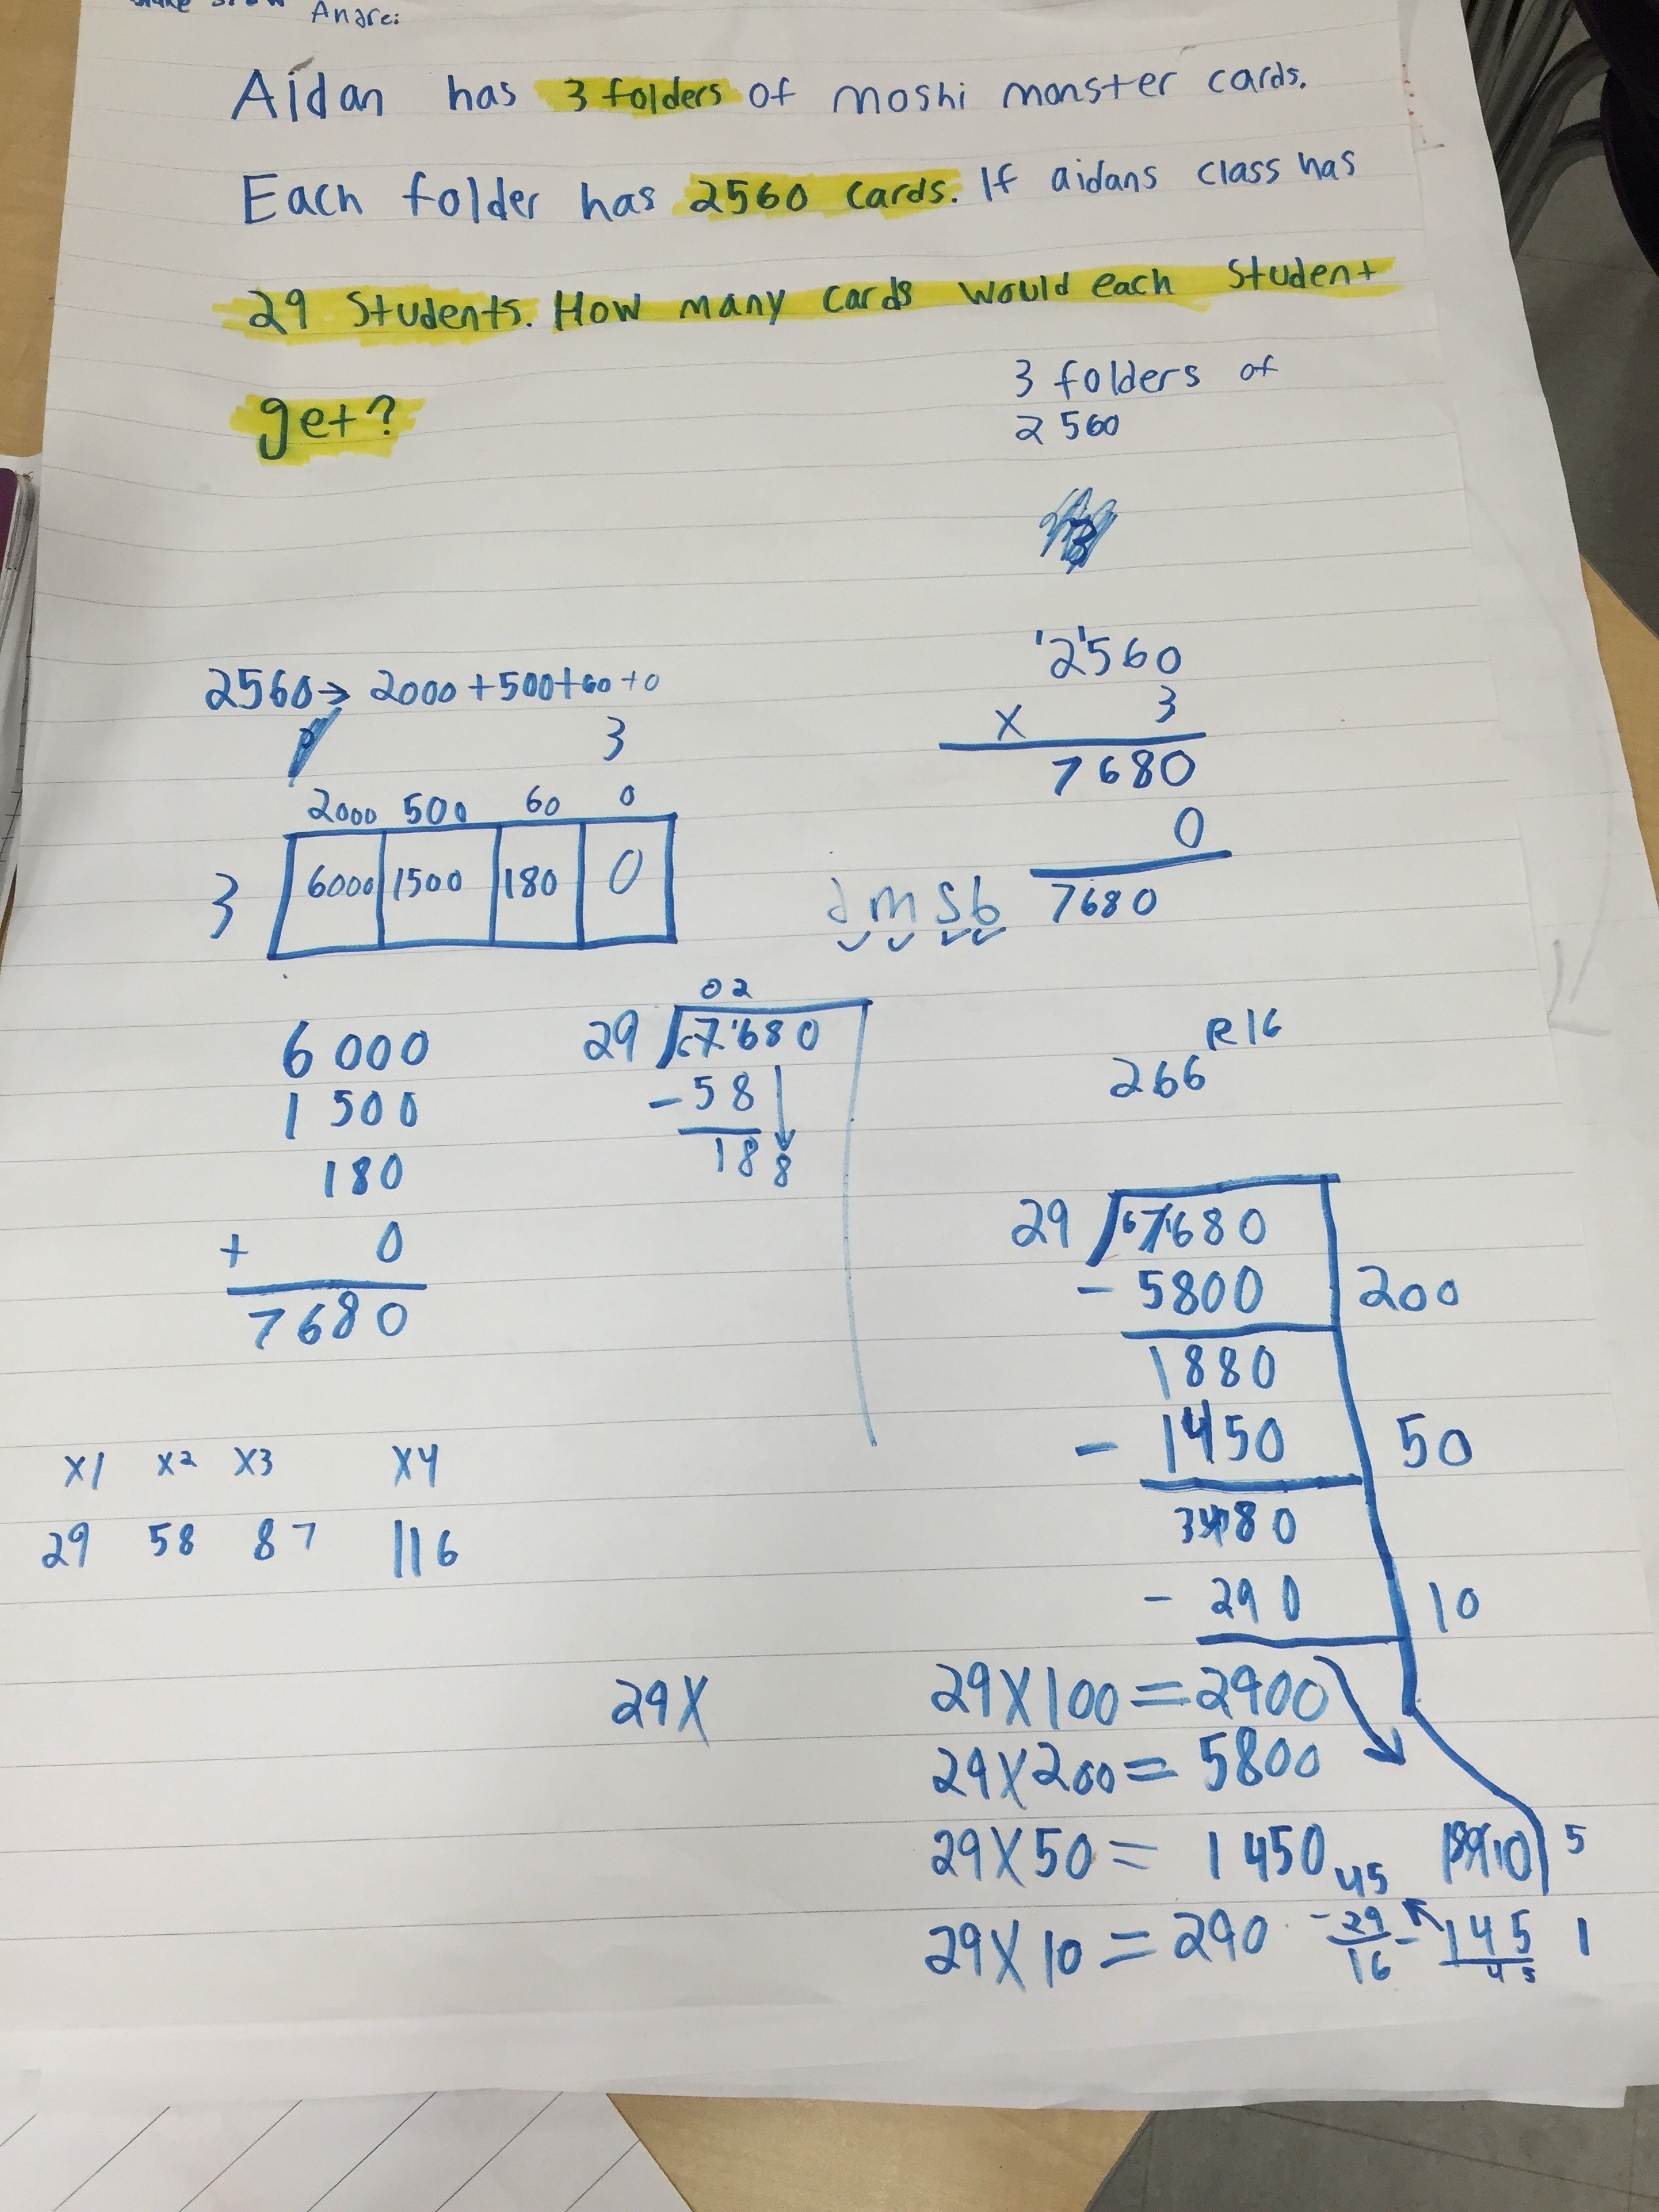 Andrei
Aidan has 3 folders of moshi monster cards.
Each folder has 2560 cards. If aidans class has
29 Students. How many cards would each Student
get?
3 folders of
2560
2560 → 2000+500+60+0
3
2000 500 60 0
3 6000 1500 180 0
1 1
2560
x 3
7680
0
7680
d m s b
6000
1500
180
+ 0
7680
02
29 671680
- 58
188
266 R16
29 671680
- 5800 200
1880
- 1450 50
3 180
- 290 10
x1 x2 x3 x4
29 58 87 116
29X
29X100=2900
29X200=5800
29X50= 1450
29X10=290
5
- 145 1
45
45
- 29
16